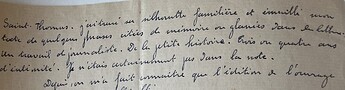 Saint-Thomas j'ai tracé sa silhouette familière et émaillé mon
texte de quelques phrases citées de mémoire ou glanées dans les lettres.
un travail de journaliste. De la petite histoire. Trois ou quatre ans
d'intimité. Je n'étais certainement pas dans la note.
Depuis on m'a fait connaître que l'édition de l'ouvrage